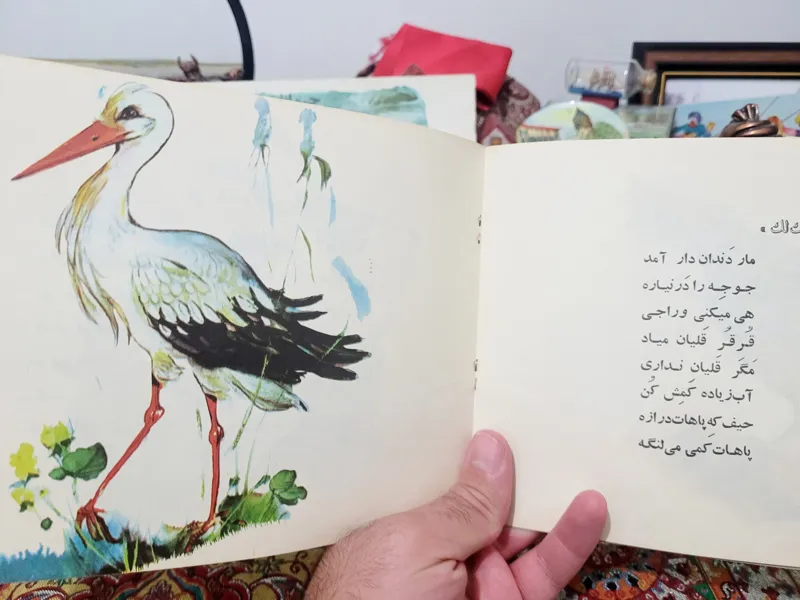 مار دَندان دار آمد
جوجِه را دَرنیاره
هی میکنی وراجی
قُرقُر قَلیان میاد
مَگَر قَلیان نداری
آب‌زیاده کَمِش کُن
حیف‌که‌ِپاهات‌درازه
پاهات‌کمی می‌لنگه